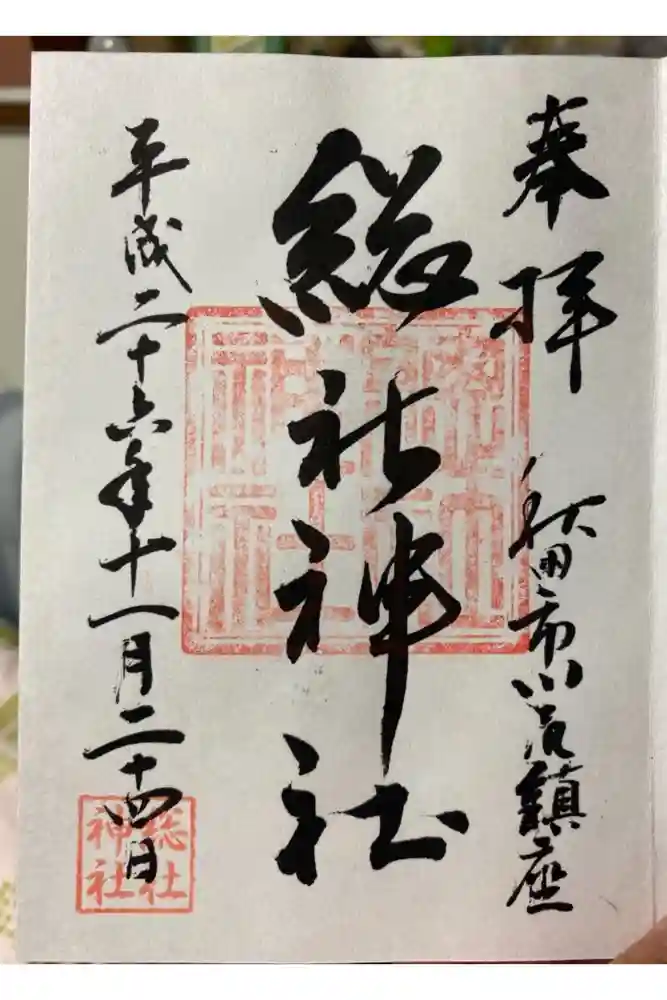 奉拝 秋田市川尻鎮座
総社神社
平成二十六年十一月二十四日
総社
神社